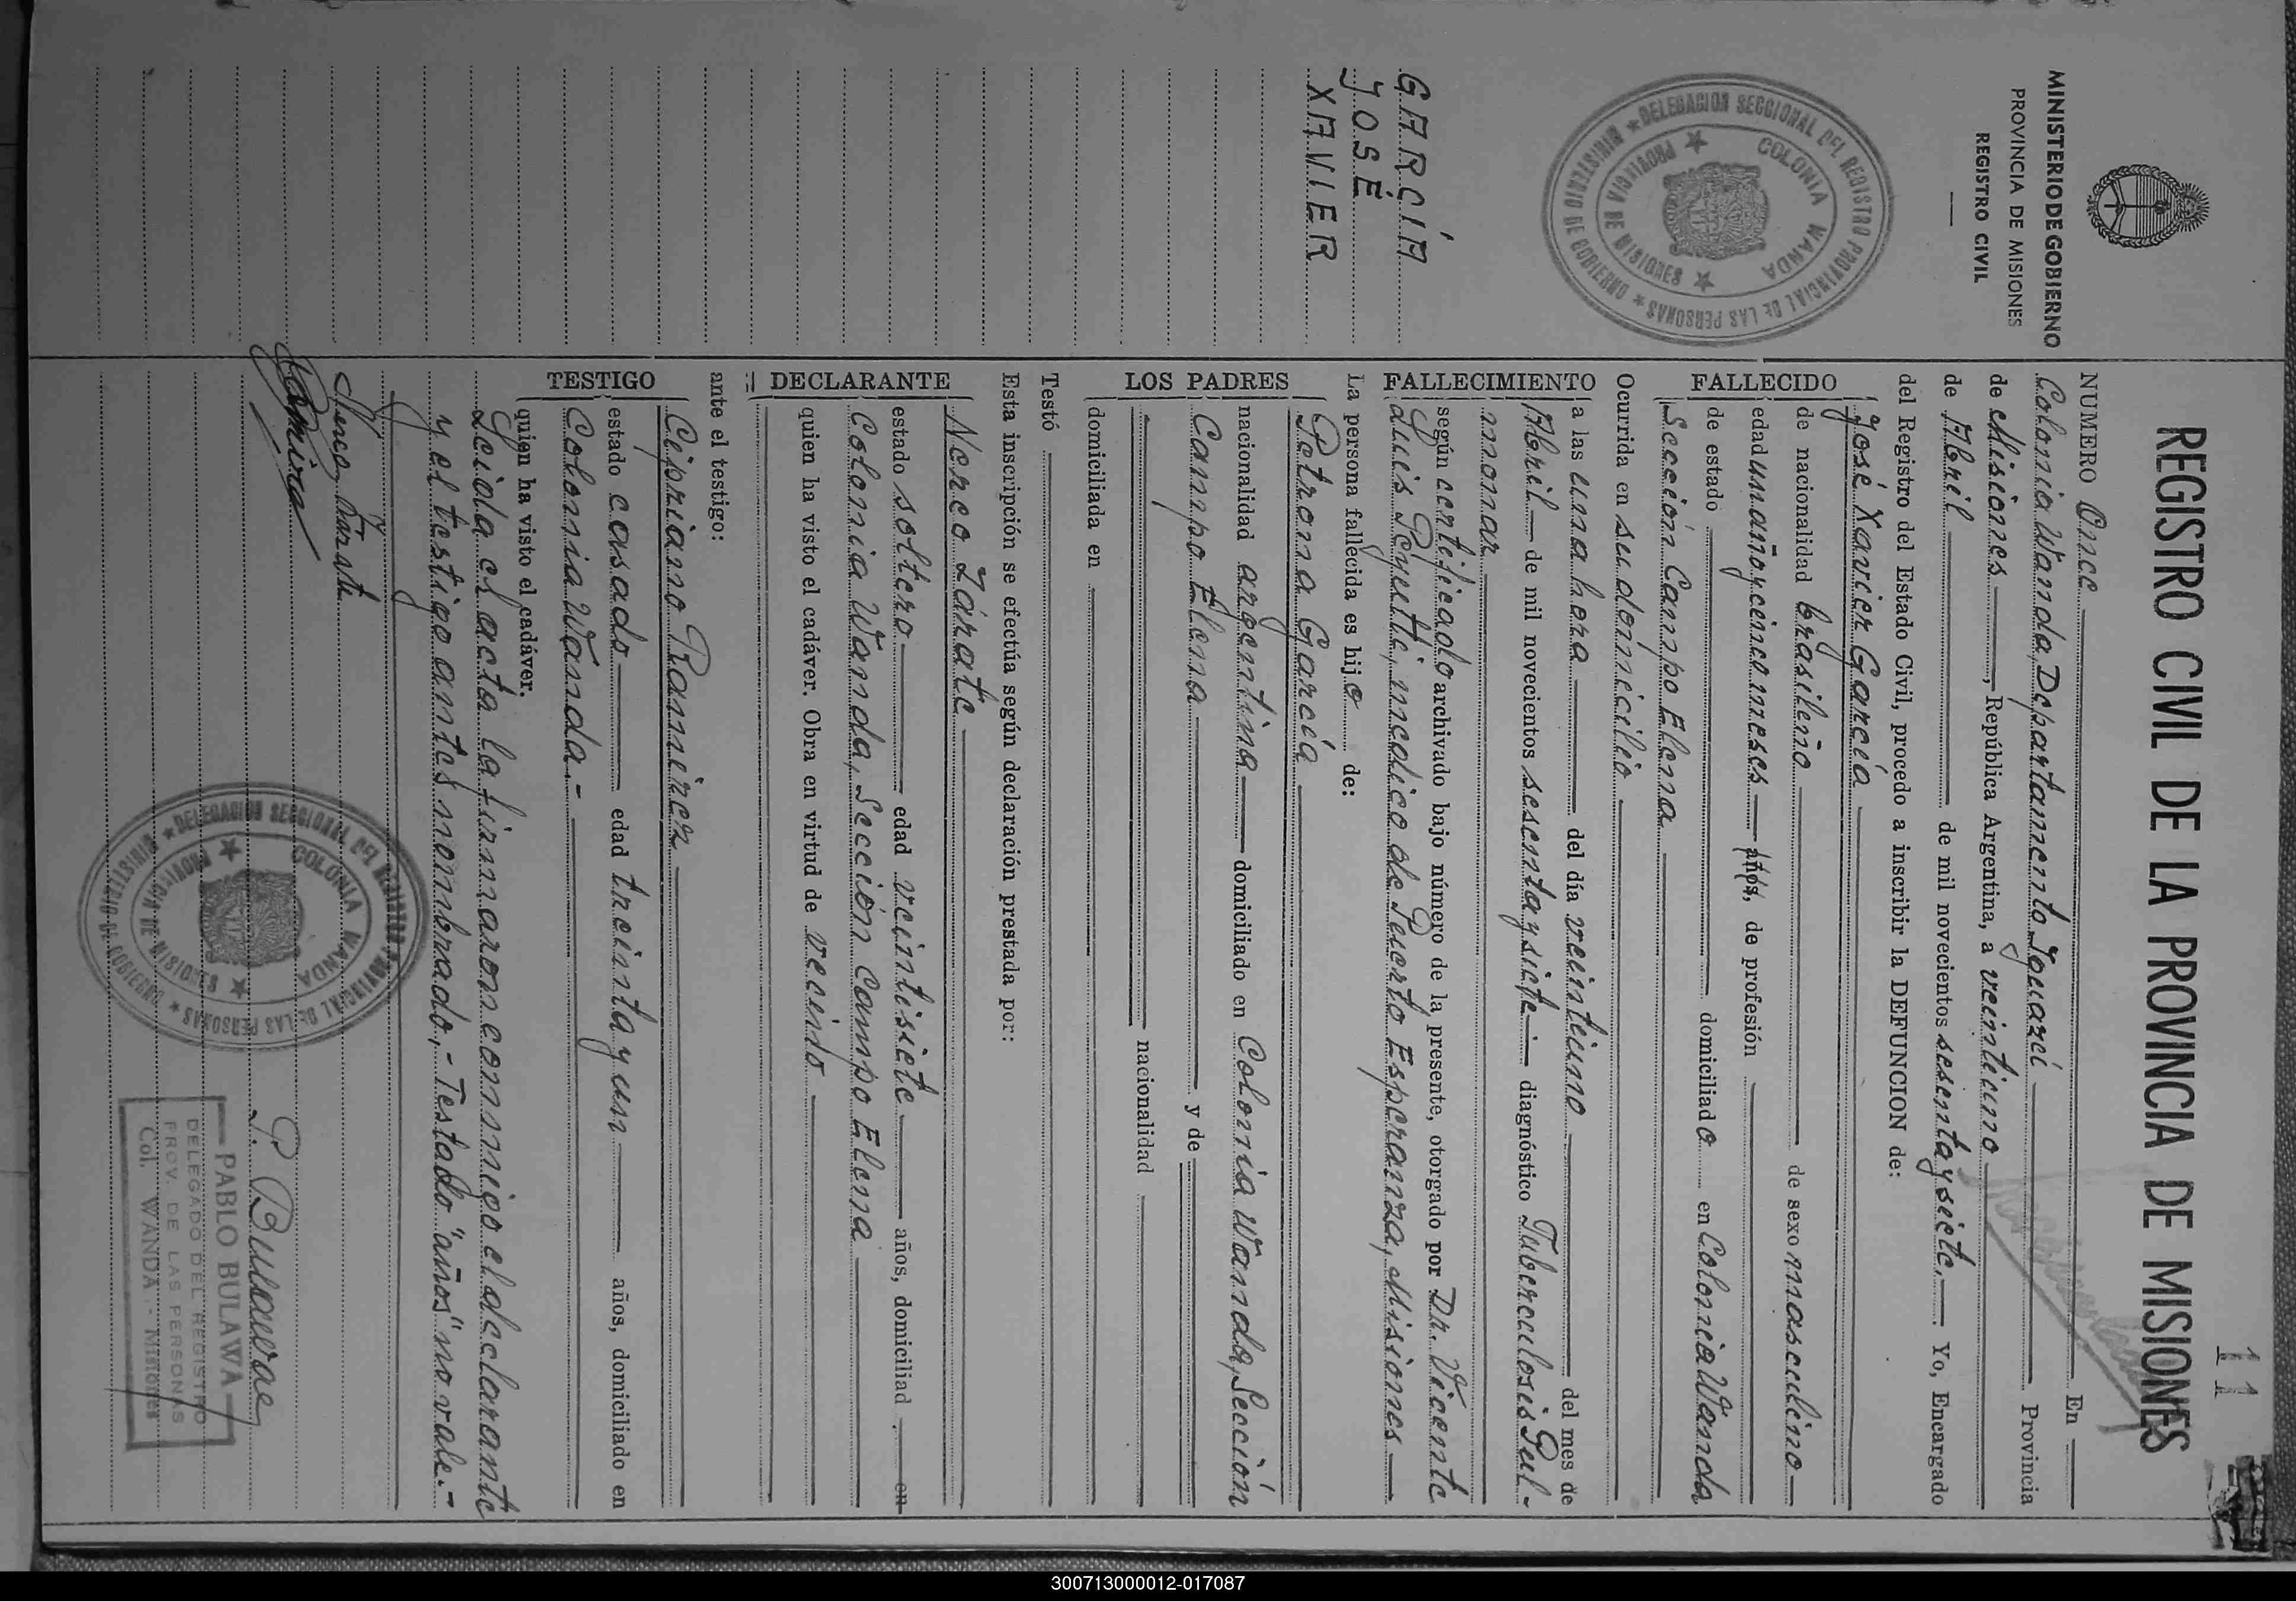 11
REGISTRO CIVIL DE LA PROVINCIA DE MISIONES
MINISTERIO DE GOBIERNO
PROVINCIA DE MISIONES
REGISTRO CIVIL
MINISTERIO DE GOBIERNO ★ DELEGACION SECCIONAL DEL REGISTRO PROVINCIAL DE LAS PERSONAS ★
COLONIA WANDA
★ PROVINCIA DE MISIONES ★
GARCÍA
JOSÉ
XAVIER
NUMERO Once En
Colonia Wanda, Departamento Iguazú Provincia
de Misiones, República Argentina, a veintiuno
de Abril de mil novecientos sesenta y siete.— Yo, Encargado
del Registro del Estado Civil, procedo a inscribir la DEFUNCION de:
FALLECIDO
José Xavier García
de nacionalidad brasileño de sexo masculino
edad un año y cinco meses años, de profesión
de estado domiciliado en Colonia Wanda
Sección Campo Elena
FALLECIMIENTO
Ocurrida en su domicilio
a las una hora del día veintiuno del mes de
Abril de mil novecientos sesenta y siete diagnóstico Tuberculosis Pul-
monar
según certificado archivado bajo número de la presente, otorgado por Dr. Vicente
Luis Peyutti, médico de Puerto Esperanza, Misiones
La persona fallecida es hijo de:
LOS PADRES
Petrona García
nacionalidad argentina domiciliado en Colonia Wanda, Sección
Campo Elena y de
nacionalidad
domiciliada en
Testó
Esta inscripción se efectúa según declaración prestada por:
DECLARANTE
Nereo Zárate
estado soltero edad veintisiete años, domiciliad en
Colonia Wanda, Sección Campo Elena
quien ha visto el cadáver. Obra en virtud de vecino
ante el testigo:
TESTIGO
Cipriano Ramírez
estado casado edad treinta y un años, domiciliado en
Colonia Wanda.-
quien ha visto el cadáver.
Leída el acta la firmaron conmigo el declarante
y el testigo antes nombrado,- Testado "años" no vale.-
Nereo Zarate
Ramirez
P. Bulawa
MINISTERIO DE GOBIERNO ★ DELEGACION SECCIONAL DEL REGISTRO PROVINCIAL DE LAS PERSONAS ★
COLONIA WANDA
★ PROVINCIA DE MISIONES ★
PABLO BULAWA
DELEGADO DEL REGISTRO
PROV. DE LAS PERSONAS
Col. WANDA - Misiones
300713000012-017087